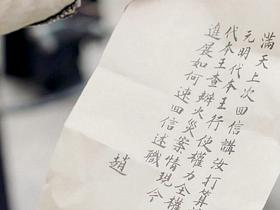 滿天上次回信講汝打算
元明代本王行使權力全權
代本王查辦火災案情現今
進展如何速回信述職
趙